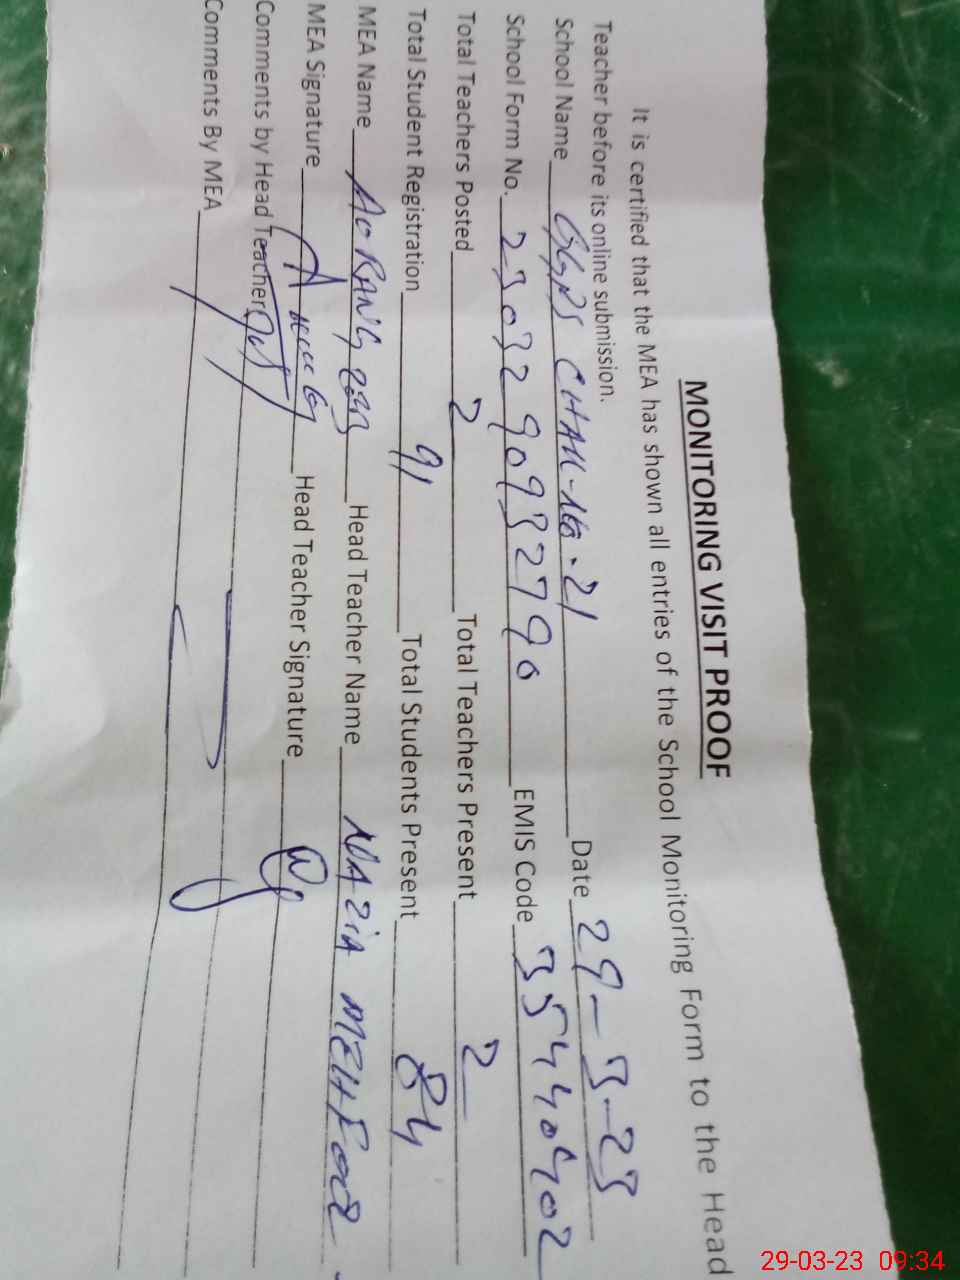 MONITORING VISIT PROOF
It is certified that the MEA has shown all entries of the School Monitoring Form to the Head
Teacher before its online submission.
School Name GGPS CHAK-16-21 Date 29-3-23
School Form No. 2303290932790 EMIS Code 35440402
Total Teachers Posted 2 Total Teachers Present 2
Total Student Registration 91 Total Students Present 84
MEA Name AORANGZEB Head Teacher Name NAZIA
MEA Signature Head Teacher Signature
Comments by Head Teacher
Comments By MEA
29-03-23 09:34